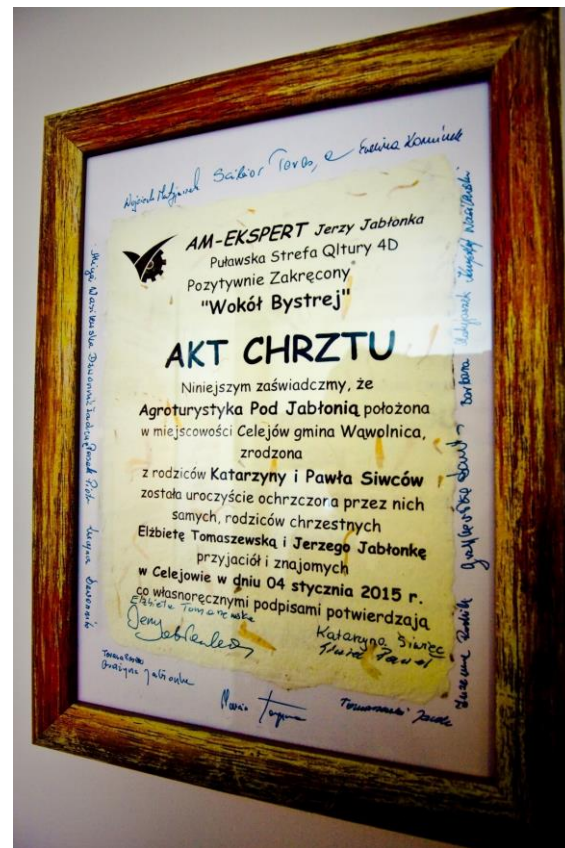 Scibior Teresa Ewelina Kominek
AM-EKSPERT Jerzy Jabłonka
Puławska Strefa Qltury 4D
Pozytywnie Zakręcony
"Wokół Bystrej"
AKT CHRZTU
Niniejszym zaświadczmy, że
Agroturystyka Pod Jabłonią położona
w miejscowości Celejów gmina Wąwolnica,
zrodzona
z rodziców Katarzyny i Pawła Siwców
została uroczyście ochrzczona przez nich
samych, rodziców chrzestnych
Elżbietę Tomaszewską i Jerzego Jabłonkę
przyjaciół i znajomych
w Celejowie w dniu 04 stycznia 2015 r.
co własnoręcznymi podpisami potwierdzają
Elżbieta Tomaszewska
Katarzyna Siwiec
Paweł
Grażyna Jabłonka
Tomaszewski Jacek
Barbara Matyjaszek